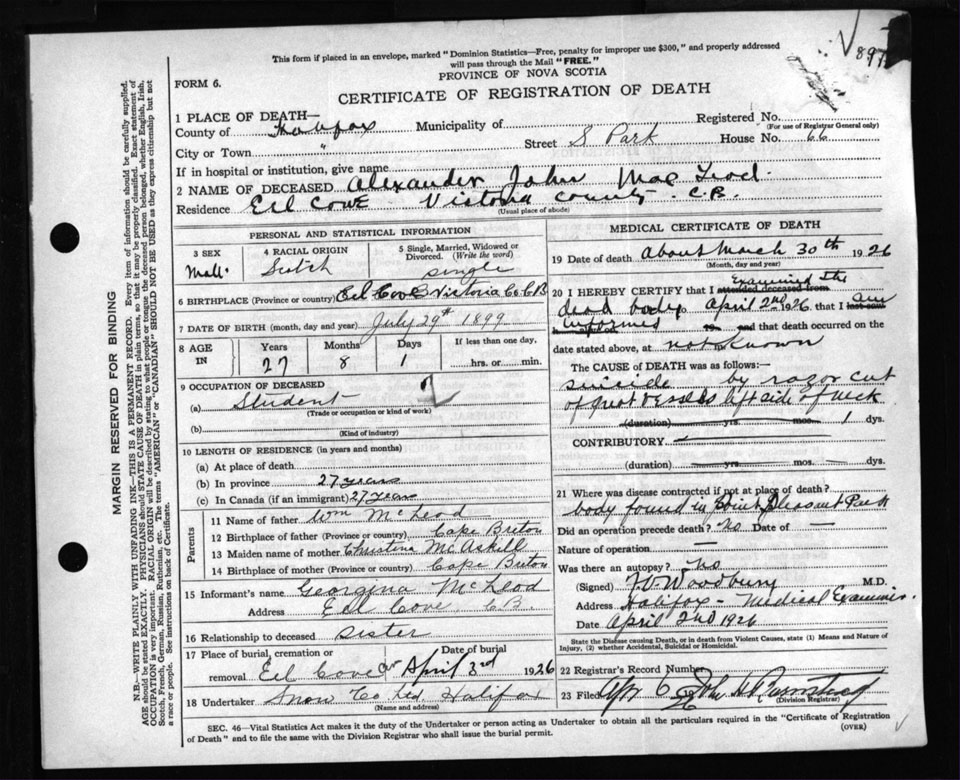 This form if placed in an envelope, marked "Dominion Statistics—Free, penalty for improper use $300," and properly addressed
will pass through the Mail "FREE."
FORM 6.
PROVINCE OF NOVA SCOTIA
CERTIFICATE OF REGISTRATION OF DEATH
897
1 PLACE OF DEATH—
Registered No.
(For use of Registrar General only)
County of Halifax Municipality of Street S Park House No. 66
City or Town "
If in hospital or institution, give name
2 NAME OF DECEASED Alexander John Mac Leod.
Residence Eel Cove Victoria County C.B.
(Usual place of abode)
PERSONAL AND STATISTICAL INFORMATION
3 SEX Male
4 RACIAL ORIGIN Scotch
5 Single, Married, Widowed or Divorced. (Write the word) single
6 BIRTHPLACE (Province or country) Eel Cove Victoria Co. C.B
7 DATE OF BIRTH (month, day and year) July 29th 1899
8 AGE IN Years 27 Months 8 Days 1 If less than one day, hrs. or min.
9 OCCUPATION OF DECEASED
(a) Student
(Trade or occupation or kind of work)
(b)
(Kind of industry)
10 LENGTH OF RESIDENCE (in years and months)
(a) At place of death
(b) In province 27 years
(c) In Canada (if an immigrant) 27 years
Parents
11 Name of father Wm McLeod
12 Birthplace of father (Province or country) Cape Breton
13 Maiden name of mother Christina McAskill
14 Birthplace of mother (Province or country) Cape Breton
15 Informant's name Georgina McLeod
Address Eel Cove C.B.
16 Relationship to deceased sister
17 Place of burial, cremation or removal Eel Cove Date of burial April 3rd 1926
18 Undertaker Snow Co Ltd. Halifax
(Name and address)
MEDICAL CERTIFICATE OF DEATH
19 Date of death About March 30th 1926
(Month, day and year)
20 I HEREBY CERTIFY that I attended deceased from Examined the
dead body April 2nd 1926 that I last saw am
informed 19 and that death occurred on
date stated above, at not known m.
The CAUSE of DEATH was as follows:—
suicide by razor cut
of great vessels left side of neck
(duration) yrs. mos. 1 dys.
CONTRIBUTORY
(duration) yrs. mos. dys.
21 Where was disease contracted if not at place of death?
body found in Point Pleasant Park
Did an operation precede death? No Date of —
Nature of operation —
Was there an autopsy? No
(Signed) W Woodbury M.D.
Address Halifax - Medical Examiner.
Date April 2nd 1926
State the Disease causing Death, or in death from Violent Causes, state (1) Means and Nature of
Injury, (2) whether Accidental, Suicidal or Homicidal.
22 Registrar's Record Number
23 Filed Apr 6
(Division Registrar)
SEC. 46—Vital Statistics Act makes it the duty of the Undertaker or person acting as Undertaker to obtain all the particulars required in the "Certificate of Registration
of Death" and to file the same with the Division Registrar who shall issue the burial permit.
(OVER)
MARGIN RESERVED FOR BINDING
N.B.—WRITE PLAINLY WITH UNFADING INK—THIS IS A PERMANENT RECORD. Every item of information should be carefully supplied.
AGE should be stated EXACTLY. PHYSICIANS should STATE CAUSE OF DEATH in plain terms, so that it may be properly classified. Exact statement of
OCCUPATION is very important. RACIAL ORIGIN will be described by stating to what people or tongue the deceased person belonged, whether English, Irish,
Scotch, French, German, Russian, Ruthenian, etc. The terms "AMERICAN" or "CANADIAN" SHOULD NOT BE USED as they express citizenship but not
a race or people. See instructions on back of Certificate.